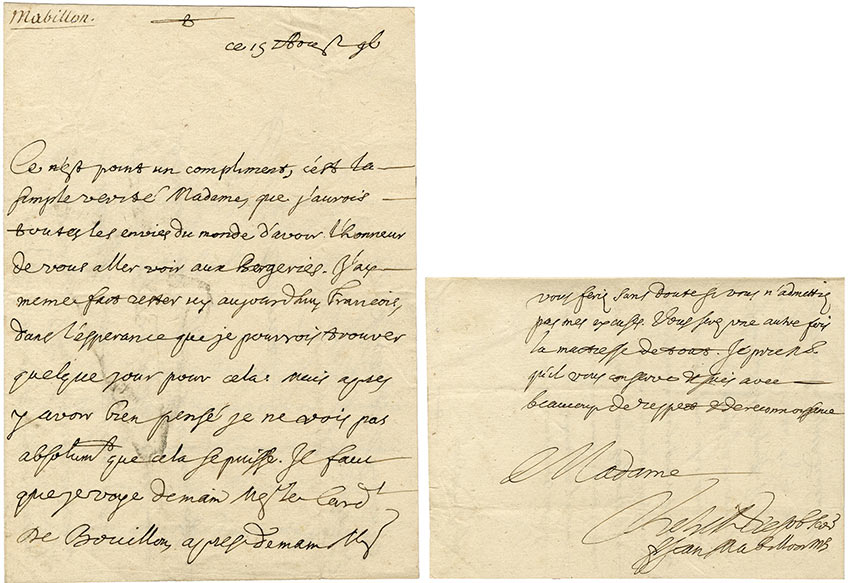 Mabillon.
ce 15 Aoust 96
Ce n'est point un compliment, c'est la
simple verité Madame, que j'aurois
toutes les envies du monde d'avoir l'honneur
de vous aller voir aux Bergeries. J'ay
meme fait rester icy aujourd'huy Francois,
dans l'esperance que je pourrois trouver
quelque jour pour cela. Mais apres
y avoir bien pensé je ne vois pas
absolumt que cela se puisse. Il faut
que je voye demain Mgr le Cardl
de Bouillon, apresdemain Mr
vous seriez sans doute si vous n'admettiez
pas mes excuses. Vous serez une autre fois
la maitresse de tout. Je prie N.S.
qu'il vous conserve & suis avec
beaucoup de respect & de reconnoissance
Madame
Votre tres obeist
fr Jean Mabillon MB